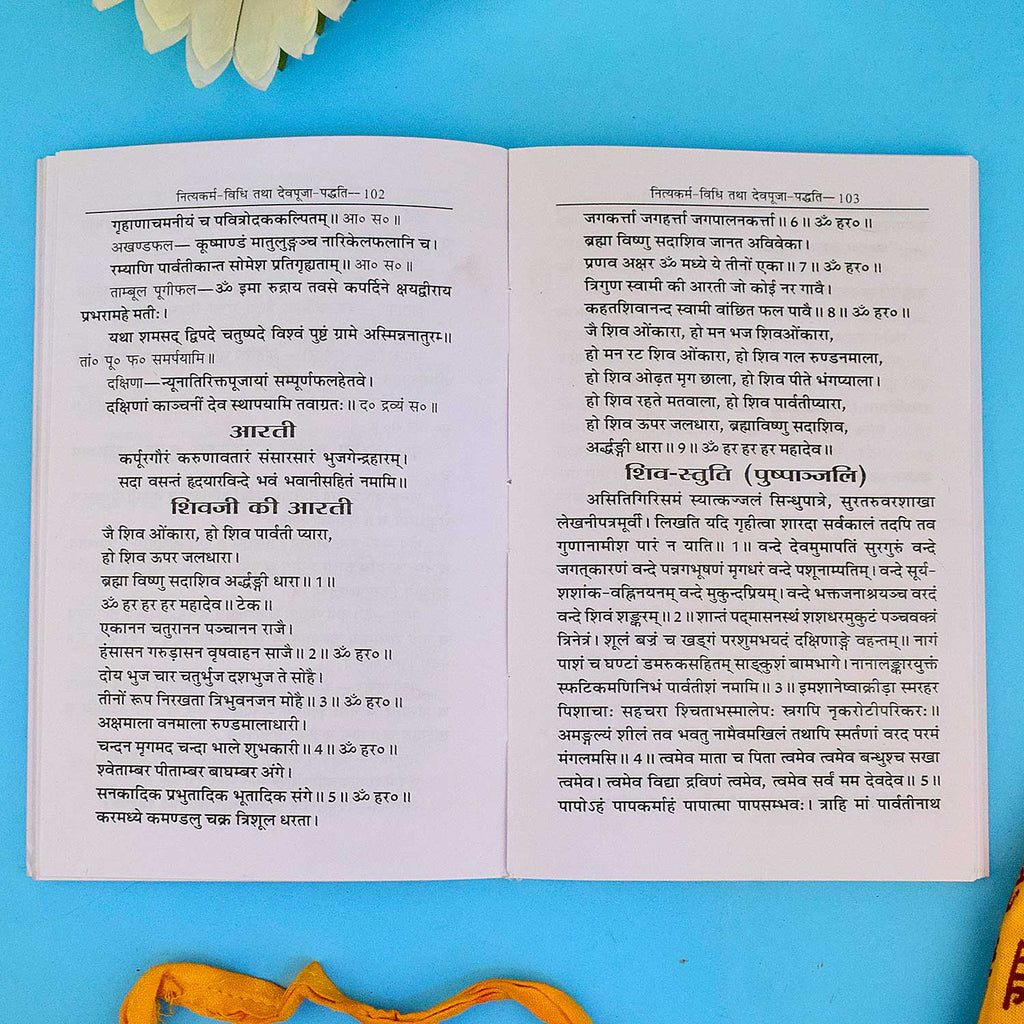 नित्यकर्म-विधि तथा देवपूजा-पद्धति—102
गृहाणाचमनीयं च पवित्रोदककल्पितम्॥ आ० स०॥
अखण्डफल— कूष्माण्डं मातुलुङ्गञ्च नारिकेलफलानि च।
रम्याणि पार्वतीकान्त सोमेश प्रतिगृह्यताम्॥ आ० स०॥
ताम्बूल पूगीफल—ॐ इमा रुद्राय तवसे कपर्दिने क्षयद्वीराय
प्रभरामहे मतीः।
यथा शमसद् द्विपदे चतुष्पदे विश्वं पुष्टं ग्रामे अस्मिन्ननातुरम्॥
तां० पू० फ० समर्पयामि॥
दक्षिणा—न्यूनातिरिक्तपूजायां सम्पूर्णफलहेतवे।
दक्षिणां काञ्चनीं देव स्थापयामि तवाग्रतः॥ द० द्रव्यं स०॥
आरती
कर्पूरगौरं करुणावतारं संसारसारं भुजगेन्द्रहारम्।
सदा वसन्तं हृदयारविन्दे भवं भवानीसहितं नमामि॥
शिवजी की आरती
जै शिव ओंकारा, हो शिव पार्वती प्यारा,
हो शिव ऊपर जलधारा।
ब्रह्मा विष्णु सदाशिव अर्द्धङ्गी धारा॥1॥
ॐ हर हर हर महादेव॥ टेक॥
एकानन चतुरानन पञ्चानन राजै।
हंसासन गरुड़ासन वृषवाहन साजै॥2॥ ॐ हर०॥
दोय भुज चार चतुर्भुज दशभुज ते सोहै।
तीनों रूप निरखता त्रिभुवनजन मोहै॥3॥ ॐ हर०॥
अक्षमाला वनमाला रुण्डमालाधारी।
चन्दन मृगमद चन्दा भाले शुभकारी॥4॥ ॐ हर०॥
श्वेताम्बर पीताम्बर बाघम्बर अंगे।
सनकादिक प्रभुतादिक भूतादिक संगे॥5॥ ॐ हर०॥
करमध्ये कमण्डलु चक्र त्रिशूल धरता।
नित्यकर्म-विधि तथा देवपूजा-पद्धति—103
जगकर्त्ता जगहर्त्ता जगपालनकर्त्ता॥6॥ ॐ हर०॥
ब्रह्मा विष्णु सदाशिव जानत अविवेका।
प्रणव अक्षर ॐ मध्ये ये तीनों एका॥7॥ ॐ हर०॥
त्रिगुण स्वामी की आरती जो कोई नर गावै।
कहतशिवानन्द स्वामी वांछित फल पावै॥8॥ ॐ हर०॥
जै शिव ओंकारा, हो मन भज शिवओंकारा,
हो मन रट शिव ओंकारा, हो शिव गल रुण्डनमाला,
हो शिव ओढ़त मृग छाला, हो शिव पीते भंगप्याला।
हो शिव रहते मतवाला, हो शिव पार्वतीप्यारा,
हो शिव ऊपर जलधारा, ब्रह्माविष्णु सदाशिव,
अर्द्धङ्गी धारा॥9॥ ॐ हर हर हर महादेव॥
शिव-स्तुति (पुष्पाञ्जलि)
असितिगिरिसमं स्यात्कज्जलं सिन्धुपात्रे, सुरतरुवरशाखा
लेखनीपत्रमूर्वी। लिखति यदि गृहीत्वा शारदा सर्वकालं तदपि तव
गुणानामीश पारं न याति॥1॥ वन्दे देवमुमापतिं सुरगुरुं वन्दे
जगत्कारणं वन्दे पन्नगभूषणं मृगधरं वन्दे पशूनाम्पतिम्। वन्दे सूर्य-
शशांक-वह्निनयनम् वन्दे मुकुन्दप्रियम्। वन्दे भक्तजनाश्रयञ्च वरदं
वन्दे शिवं शङ्करम्॥2॥ शान्तं पद्मासनस्थं शशधरमुकुटं पञ्चवक्त्रं
त्रिनेत्रं। शूलं बज्रं च खड्गं परशुमभयदं दक्षिणाङ्गे वहन्तम्॥ नागं
पाशं च घण्टां डमरुकसहितम् साङ्कुशं बामभागे। नानालङ्कारयुक्तं
स्फटिकमणिनिभं पार्वतीशं नमामि॥3॥ इमशानेष्वाक्रीड़ा स्मरहर
पिशाचाः सहचरा श्चिताभस्मालेपः स्त्रगपि नृकरोटीपरिकरः॥
अमङ्गल्यं शीलं तव भवतु नामैवमखिलं तथापि स्मर्तणां वरद परमं
मंगलमसि॥4॥ त्वमेव माता च पिता त्वमेव त्वमेव बन्धुश्च सखा
त्वमेव। त्वमेव विद्या द्रविणं त्वमेव, त्वमेव सर्वं मम देवदेव॥5॥
पापोऽहं पापकर्माहं पापात्मा पापसम्भवः। त्राहि मां पार्वतीनाथ